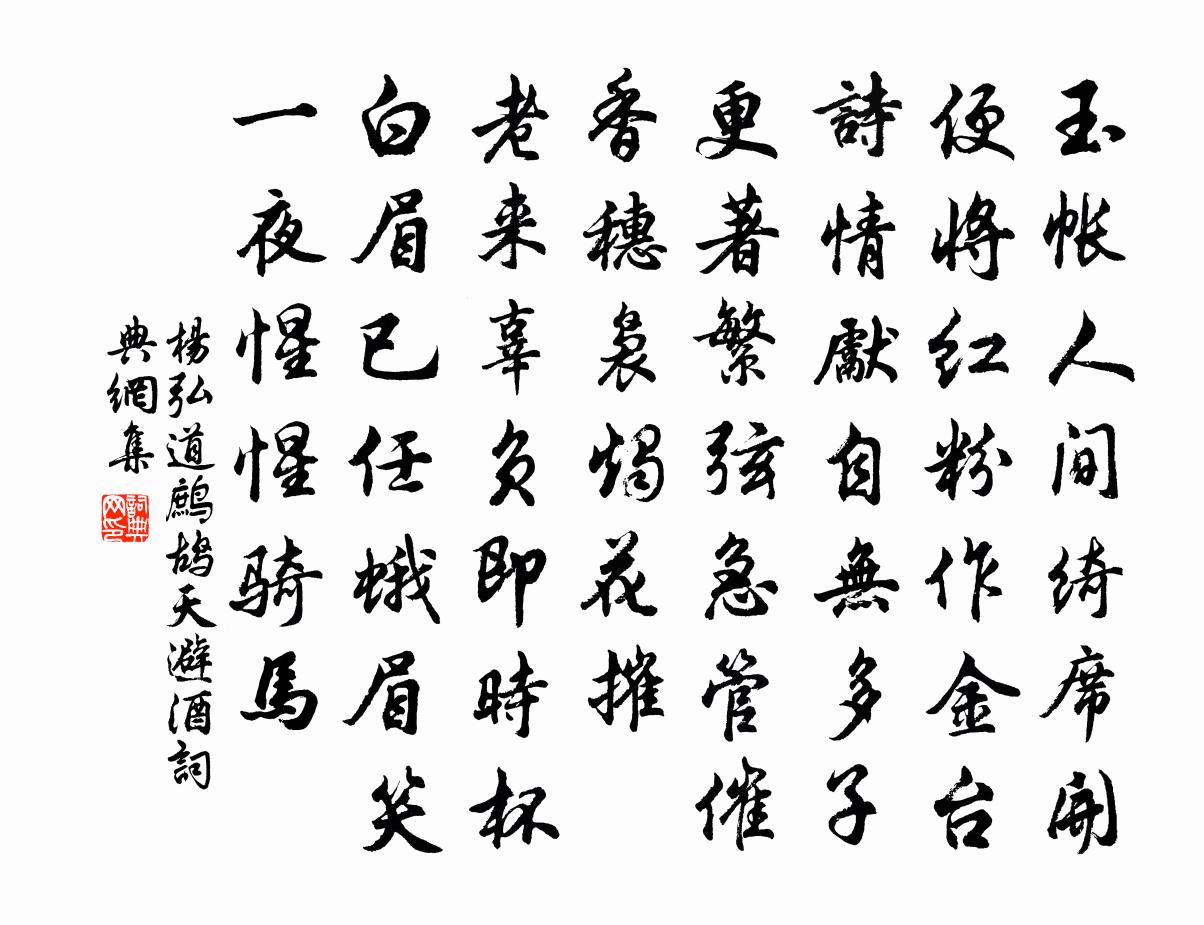 玉帐人间绮席開
便将红粉作金台
詩情獻自無多子
更著繁弦急管催
香穗袅烛花摧
老来辜负即時杯
白眉已任蛾眉笑
一夜惺惺骑馬
楊弘道鹧鸪天避酒詞
典網集
詞典网印